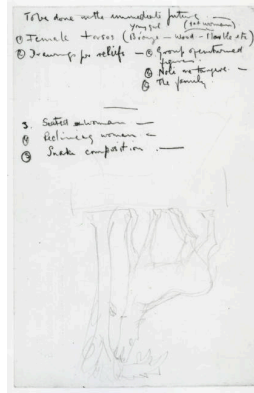 To be done in the immediate future
young girl (old woman)
① Female torsos (Bronze – Wood – Marble etc)
② Drawings for reliefs – ① Group of entwined
figures.
② Note
③ The family
3. Seated woman —
④ Reclining woman —
⑤ Snake composition. —